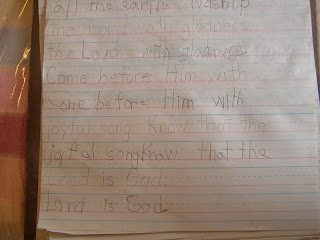 all the earth. Worship
the Lord with gladness.
the Lord with gladness.
Come before Him with
come before Him with
joyful song. Know that the
joyful songknow that the
Lord is God.
Lord is God.